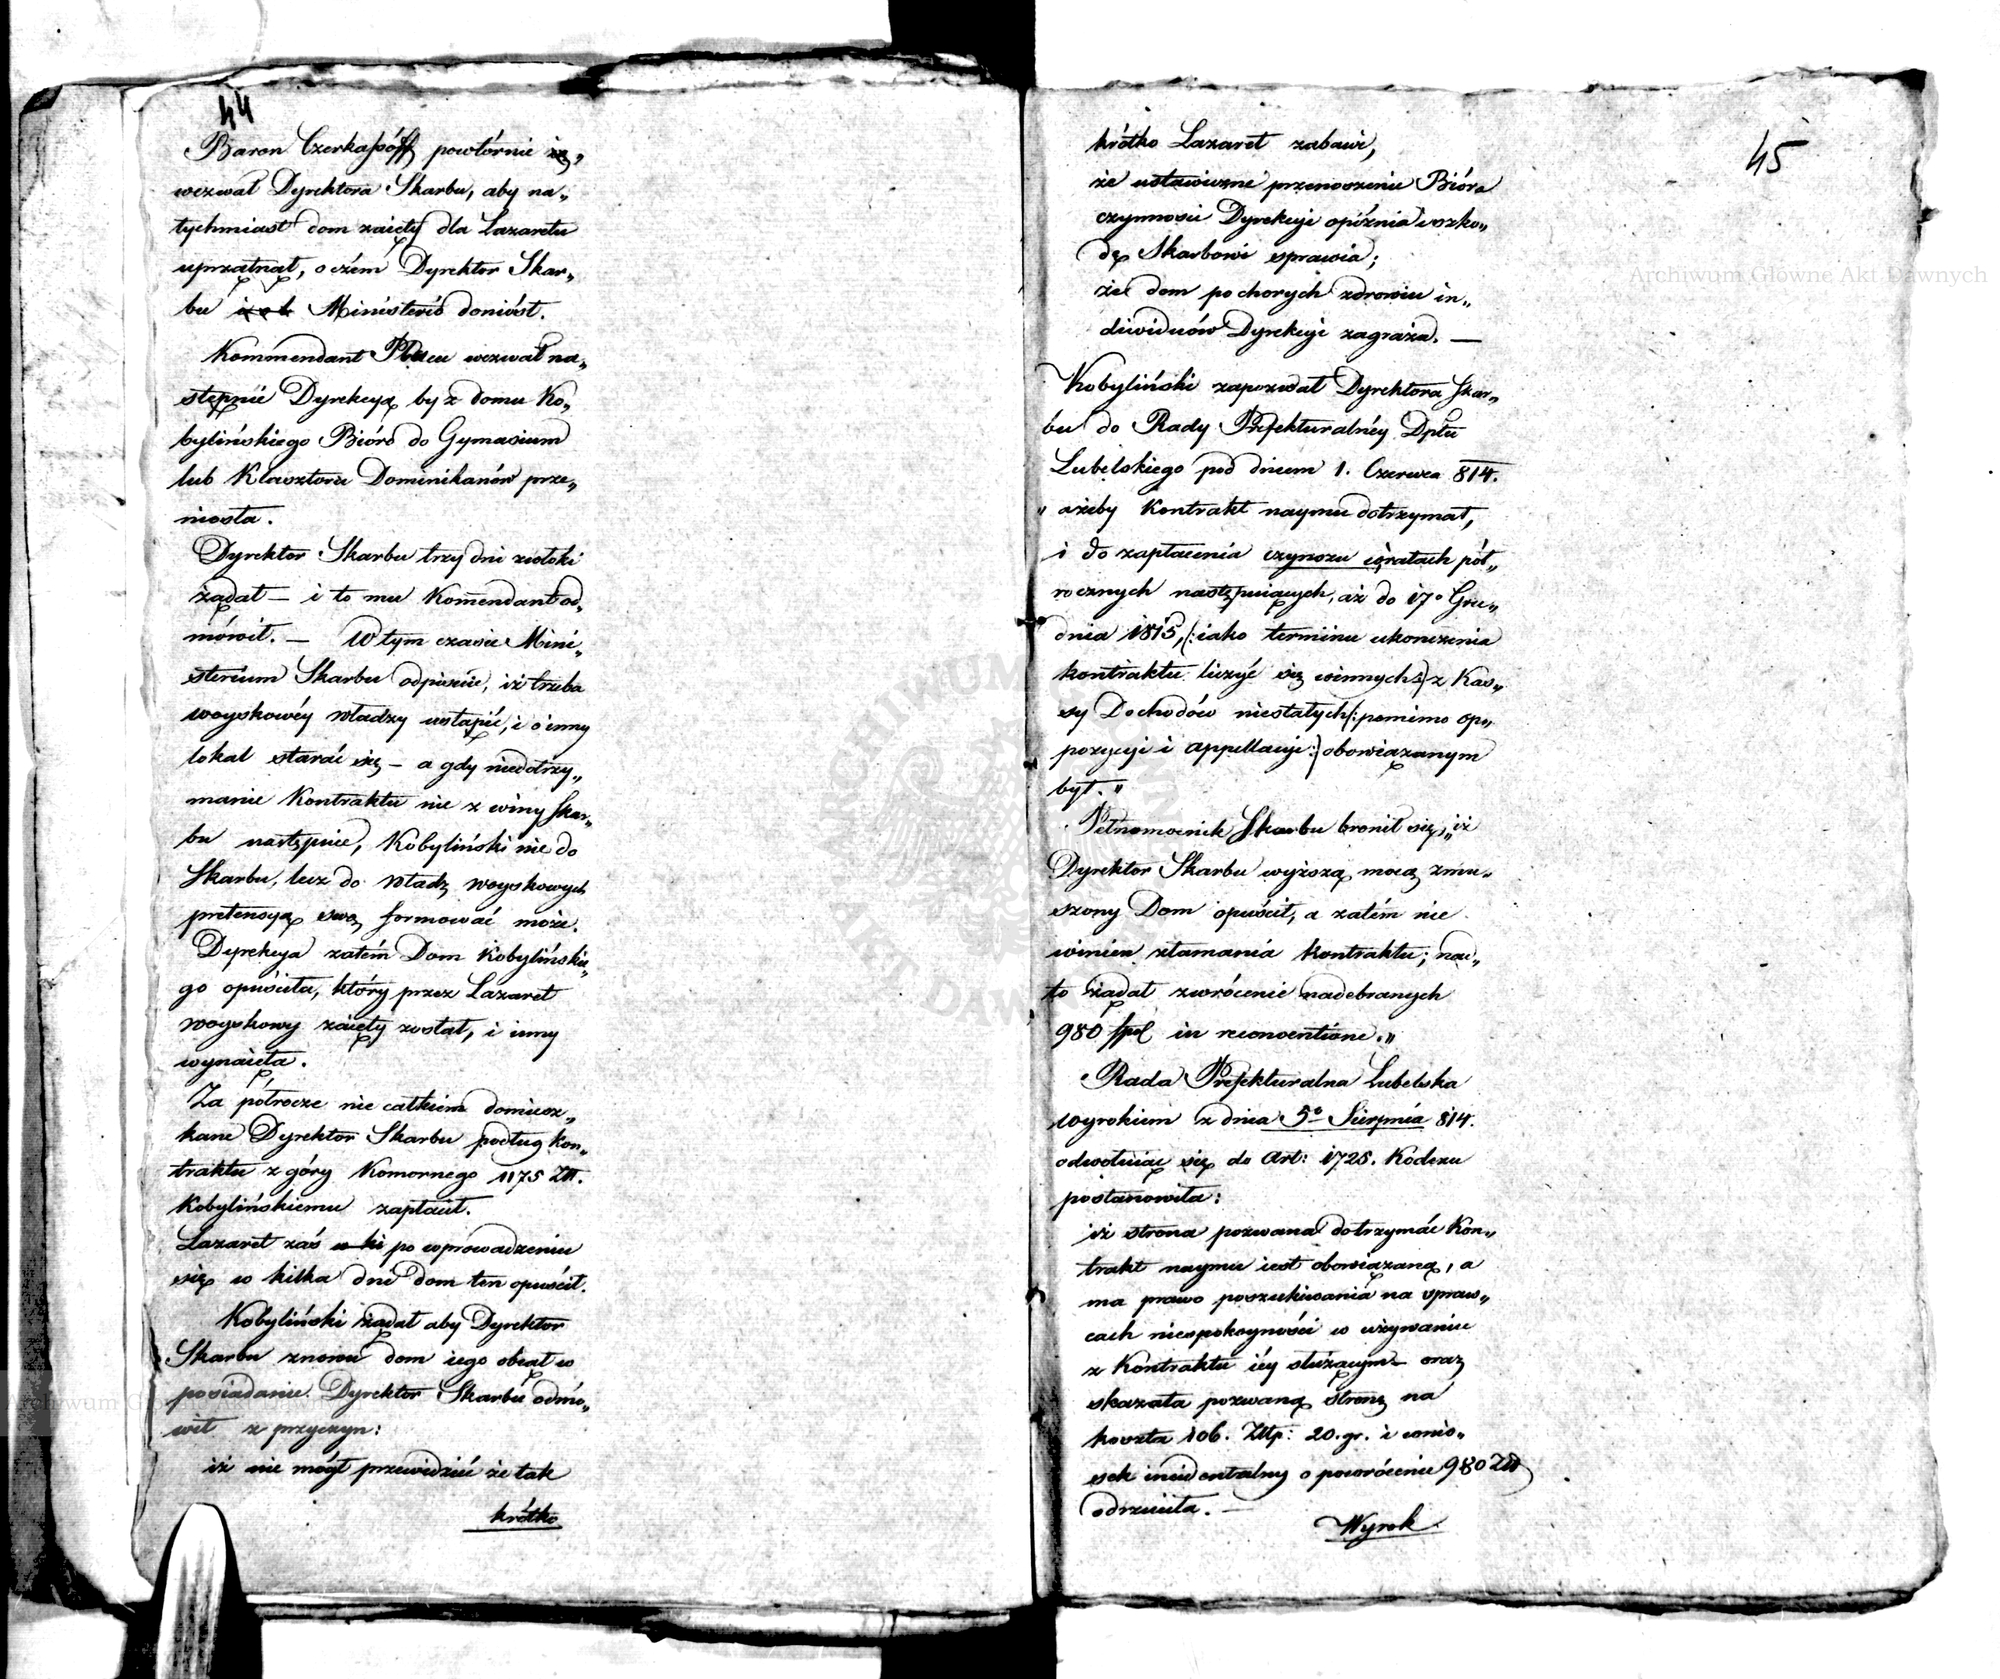 44
Baron Czerkasóff powtórnie
wezwał Dyrektora Skarbu, aby na„
tychmiast dom zaięty dla Lazaretu
uprzątnął, o czém Dyrektor Skar„
bu Ministerió doniósł.
Kommendant Placu wezwał na„
stępnie Dyrekcyą by z domu Ko„
bylińskiego Bióro do Gymasium
lub Klasztoru Dominikanów prze„
niosła.
Dyrektor Skarbu trzy dni zwłoki
żądał — i to mu Kom̄endant od„
mówił. — W tym czasie Mini„
sterium Skarbu odpisuie, iż trzeba
woyskowéy władzy ustąpić, i o inny
lokal starać się — a gdy niedotrzy„
manie Kontraktu nie z winy Skar„
bu następuie, Kobyliński nie do
Skarbu, lecz do władz woyskowych
pretensyą swą formować może.
Dyrekcya zatém Dom Kobylińskie„
go opuściła, który przez Lazaret
woyskowy zaięty został, i inny
wynaięła.
Za półrocze nie całkiem domiesz„
kane Dyrektor Skarbu podług kon„
traktu z góry Komornego 1175 Złl.
Kobylińskiemu zapłacił.
Lazaret zaś w ki po wprowadzeniu
się w kilka dni dom ten opuścił.
Kobyliński żądał aby Dyrektor
Skarbu znowu dom iego obiął w
posiadanie. Dyrektor Skarbu odmó„
wił z przyczyn:
iż nie mógł przewidzieć że tak
krótko
45
krótko Lazaret zabawi,
że ustawiczne przenoszenie Bióra
czynności Dyrekcyi opóźnia i szko„
dę Skarbowi sprawia;
że dom po chorych zdrowiu in„
diwiduów Dyrekcyi zagraża. —
Kobyliński zapozwał Dyrektora Skar„
bu do Rady Prefekturalnéy Dpttu
Lubelskiego pod dniem 1. Czerwca 814.
„ ażeby Kontrakt naymu dotrzymał,
i do zapłacenia czynszu w ratach pół„
rocznych następuiących, aż do 17o Gru„
dnia 1815, (: iako terminu ukończenia
kontraktu liczyć się winnych :) z Kas„
sy Dochodów niestałych (: pomimo op„
pozycyi i appellacyi :) obowiązanym
był. "
Pełnomocnik Skarbu bronił się, „iż
Dyrektor Skarbu wyższą mocą zmu„
szony Dom opuścił, a zatém nie
winien złamania kontraktu; nad„
to żądał zwrócenie nadebranych
980 fpol in reconventione."
Rada Prefekturalna Lubelska
wyrokiem z dnia 5o Sierpnia 814.
odwołuiąc się do Art: 1725. Kodexu
postanowiła:
iż strona pozwana dotrzymać Kon„
trakt naymu iest obowiązaną, a
ma prawo poszukiwania na spraw„
cach niespokoyności w używaniu
z Kontraktu iéy służącym — oraz
skazała pozwaną stronę na
koszta 106. Złtp: 20. gr. i wnio„
sek incidentalny o powrócenie 980 Złl
odrzuciła. —
Wyrok
Archiwum Główne Akt Dawnych